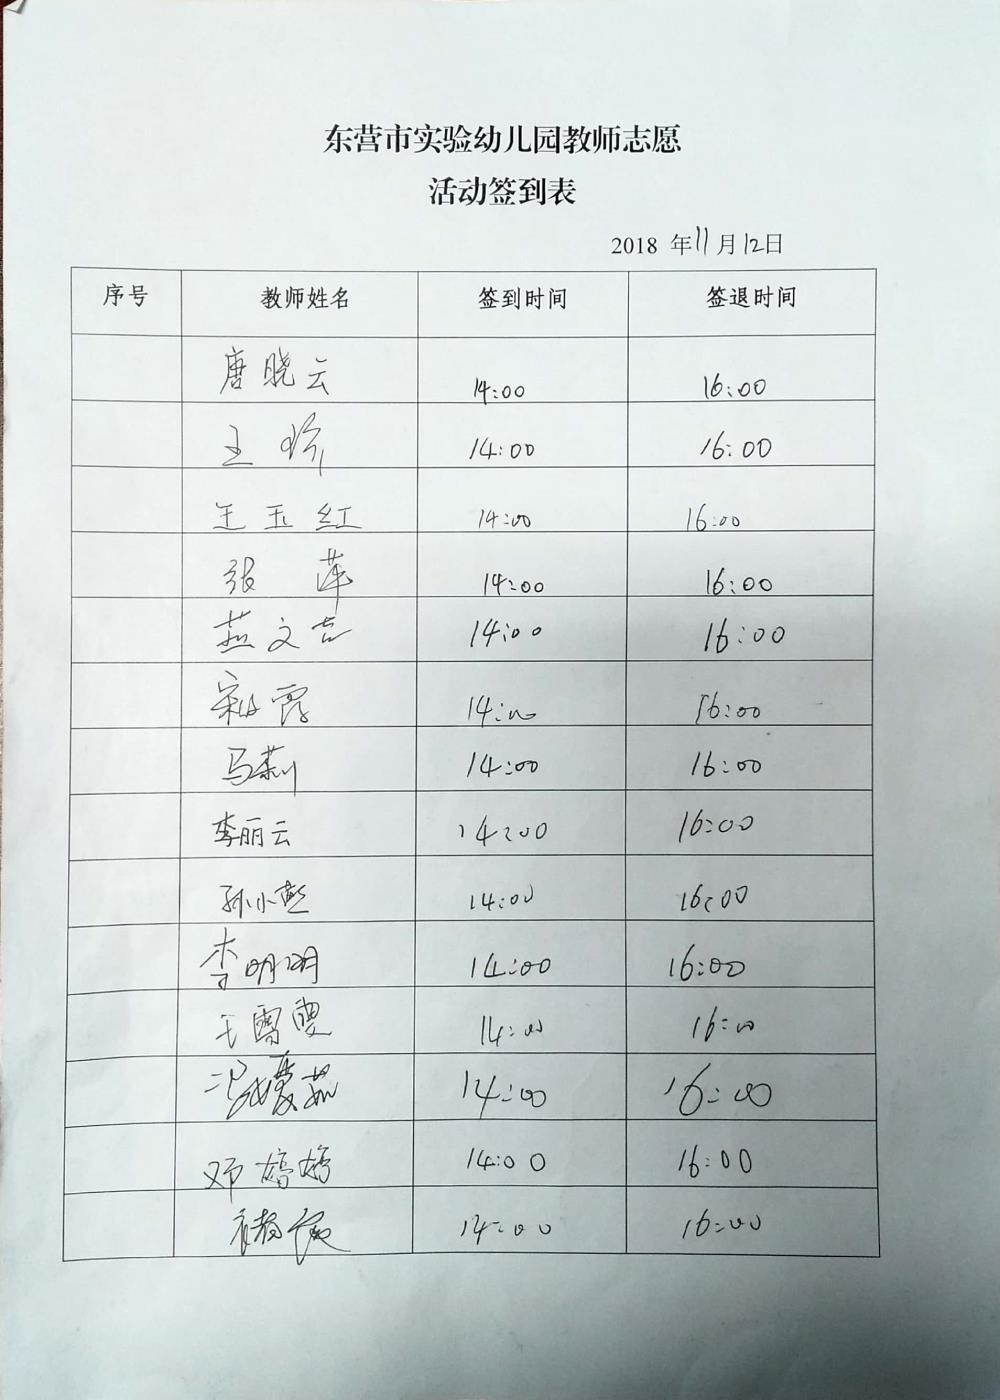 东营市实验幼儿园教师志愿
活动签到表
2018 年 11 月 12 日
序号 教师姓名 签到时间 签退时间
唐晓云 14:00 16:00
王 14:00 16:00
王玉红 14:00 16:00
张萍 14:00 16:00
燕文吉 14:00 16:00
宋露 14:00 16:00
马莉 14:00 16:00
李丽云 14:00 16:00
孙小燕 14:00 16:00
李明明 14:00 16:00
王雪 14:00 16:00
冯夏茹 14:00 16:00
邓婷婷 14:00 16:00
14:00 16:00